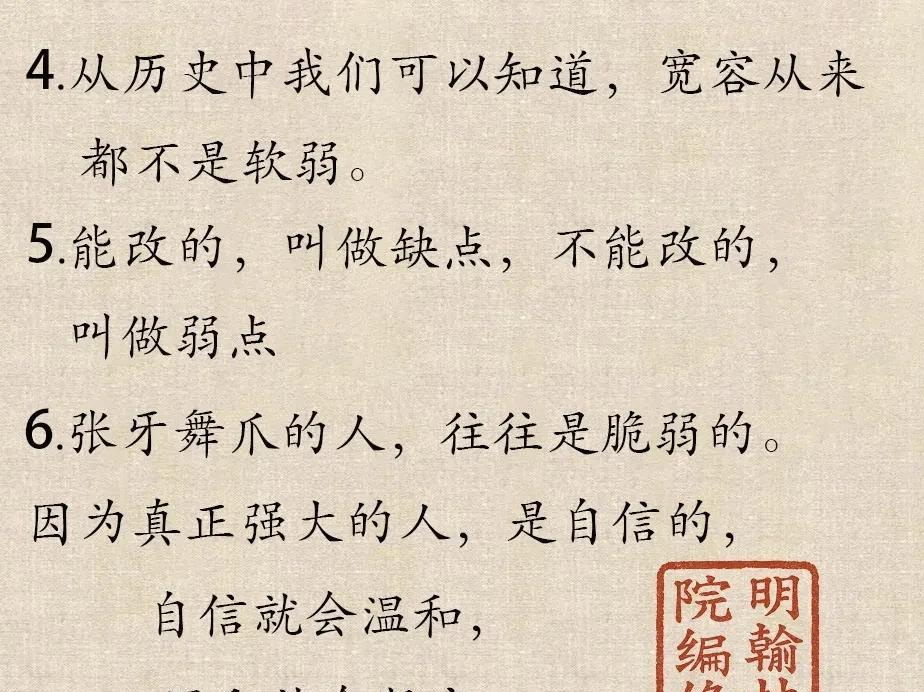 4.从历史中我们可以知道，宽容从来
都不是软弱。
5.能改的，叫做缺点，不能改的，
叫做弱点
6.张牙舞爪的人，往往是脆弱的。
因为真正强大的人，是自信的，
自信就会温和，
明翰
院编